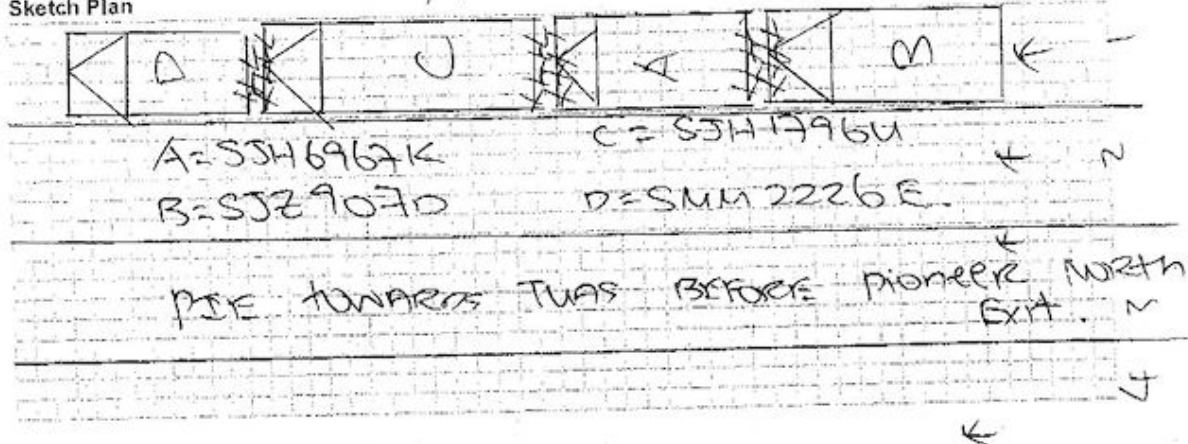 Sketch Plan
D C A B 1
A=SJH6967K C=SJH1796U
2
B=SJZ9070 D=SMM2226E.
PIE TOWARDS TUAS BEFORE PIONEER NORTH
Exit.
4